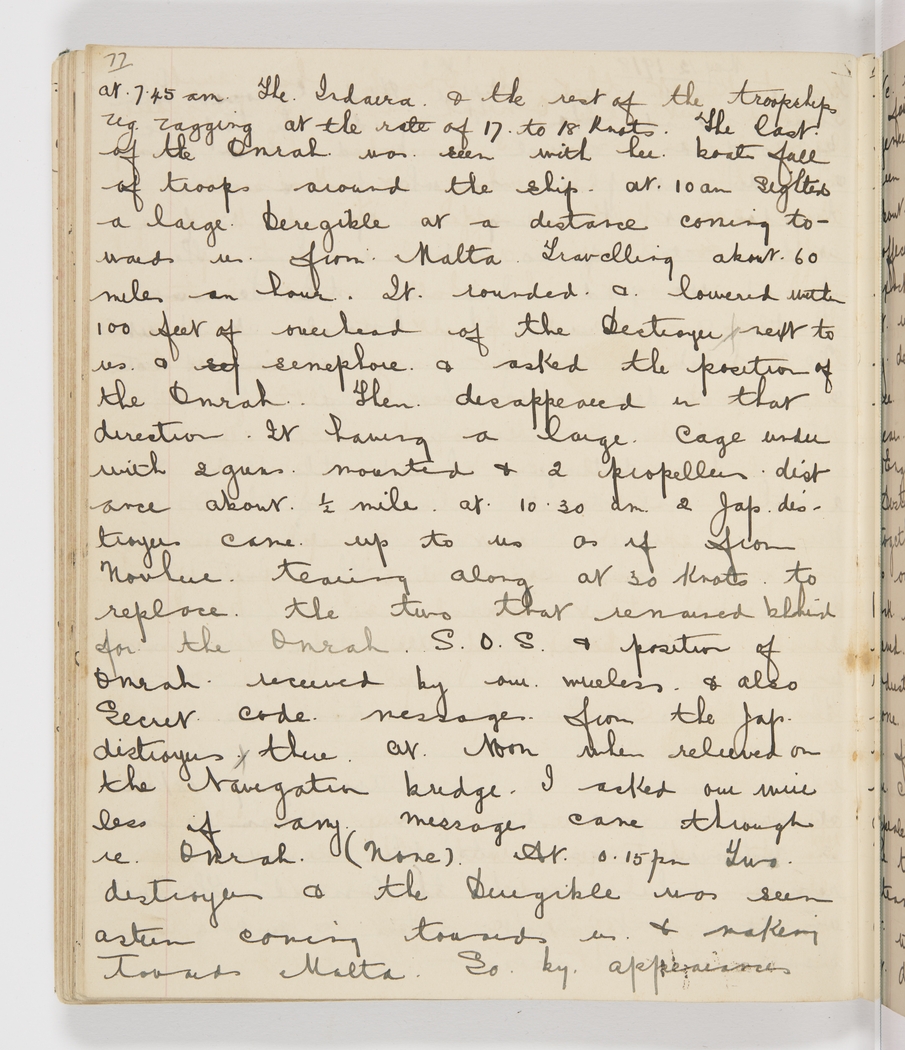 77
at. 7.45 am. The. Indarra. & the rest of the troopships
zig zagging at the rate of 17. to 18 Knots. The last
of the Omrah. was. seen with her. boats full
of troops around the ship. at. 10 am Sighted
a large. Deregible at a distance coming to-
wards us. from. Malta. Travelling about. 60
miles an hour. It. rounded. &. lowered within
100 feet of overhead of the Destroyer next to
us. & semephore. & asked the position of
the Omrah.. Then. disappeared in that
direction. It having a large. Cage under
with 2 guns. mounted & 2 propellers. dist
ance about. ½ mile. at. 10.30 am. 2 Jap. des-
troyers came. up to us as if from
Nowhere. tearing along at 30 Knots. to
replace. the two that remained behind
for the Omrah. S.O.S. & position of
Omrah. received by our. wireless. & also
Secret. code. messages. from the Jap.
distroyers there. at. Noon when relieved on
the Navigation bridge. I asked our wire
less if any. messages came through
re. Omrah. (None). At. 0.15 pm Two.
destroyers & the Deregible was seen
astern coming towards us. & making
Towards Malta. So. by. appearances